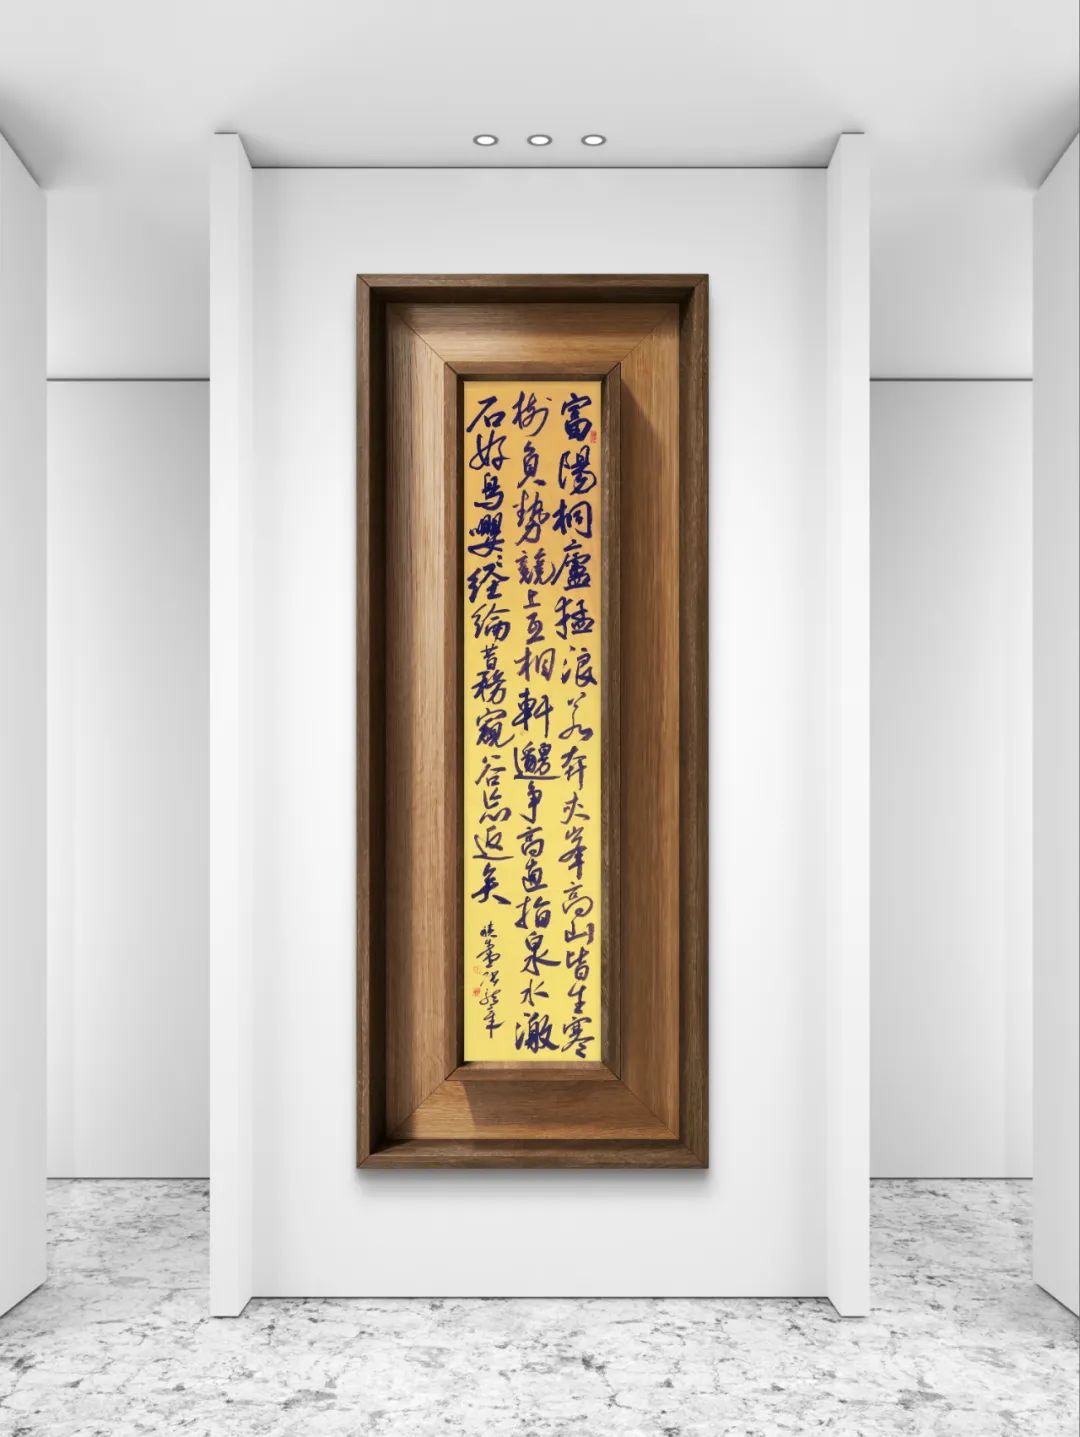 富陽桐廬猛浪若奔夾峯高山皆生寒
樹負势競上互相軒邈争高直指泉水激
石好鳥嚶々経綸昔務窺谷忘返矣